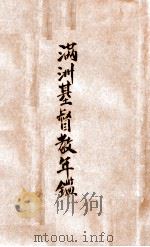 滿洲基督教年鑑
mtoou.info
mtoou.info